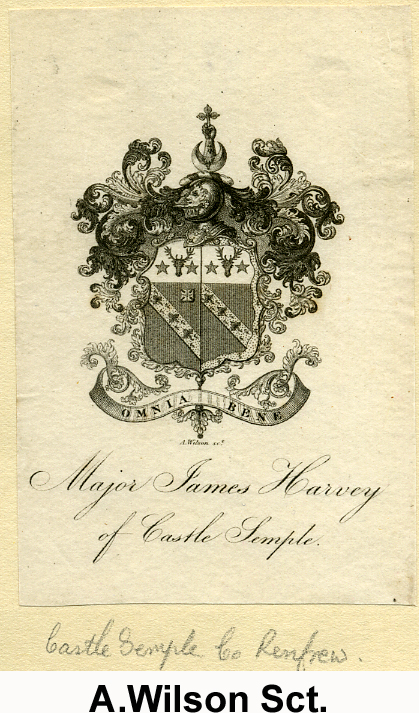 OMNIA BENE
A. Wilson sct.
Major James Harvey
of Castle Semple.
Castle Semple Co Renfrew.
A.Wilson Sct.